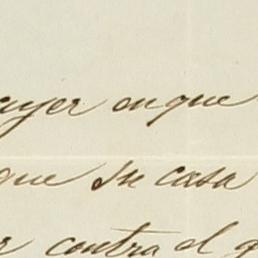 ayer en que
que su casa
r contra el g